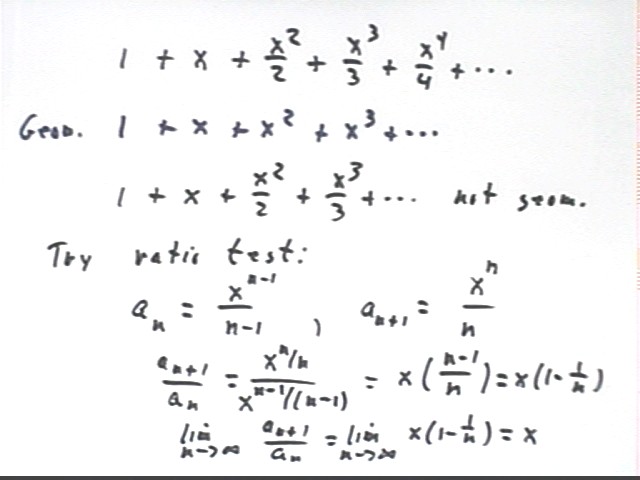 1 + x + x²/2 + x³/3 + x⁴/4 + ...
Geom. 1 + x + x² + x³ + ...
1 + x + x²/2 + x³/3 + ... not geom.
Try ratio test:
aₙ = xⁿ⁻¹/(n-1) , aₙ₊₁ = xⁿ/n
aₙ₊₁/aₙ = (xⁿ/n)/(xⁿ⁻¹/(n-1)) = x((n-1)/n) = x(1-1/n)
lim n→∞ aₙ₊₁/aₙ = lim n→∞ x(1-1/n) = x